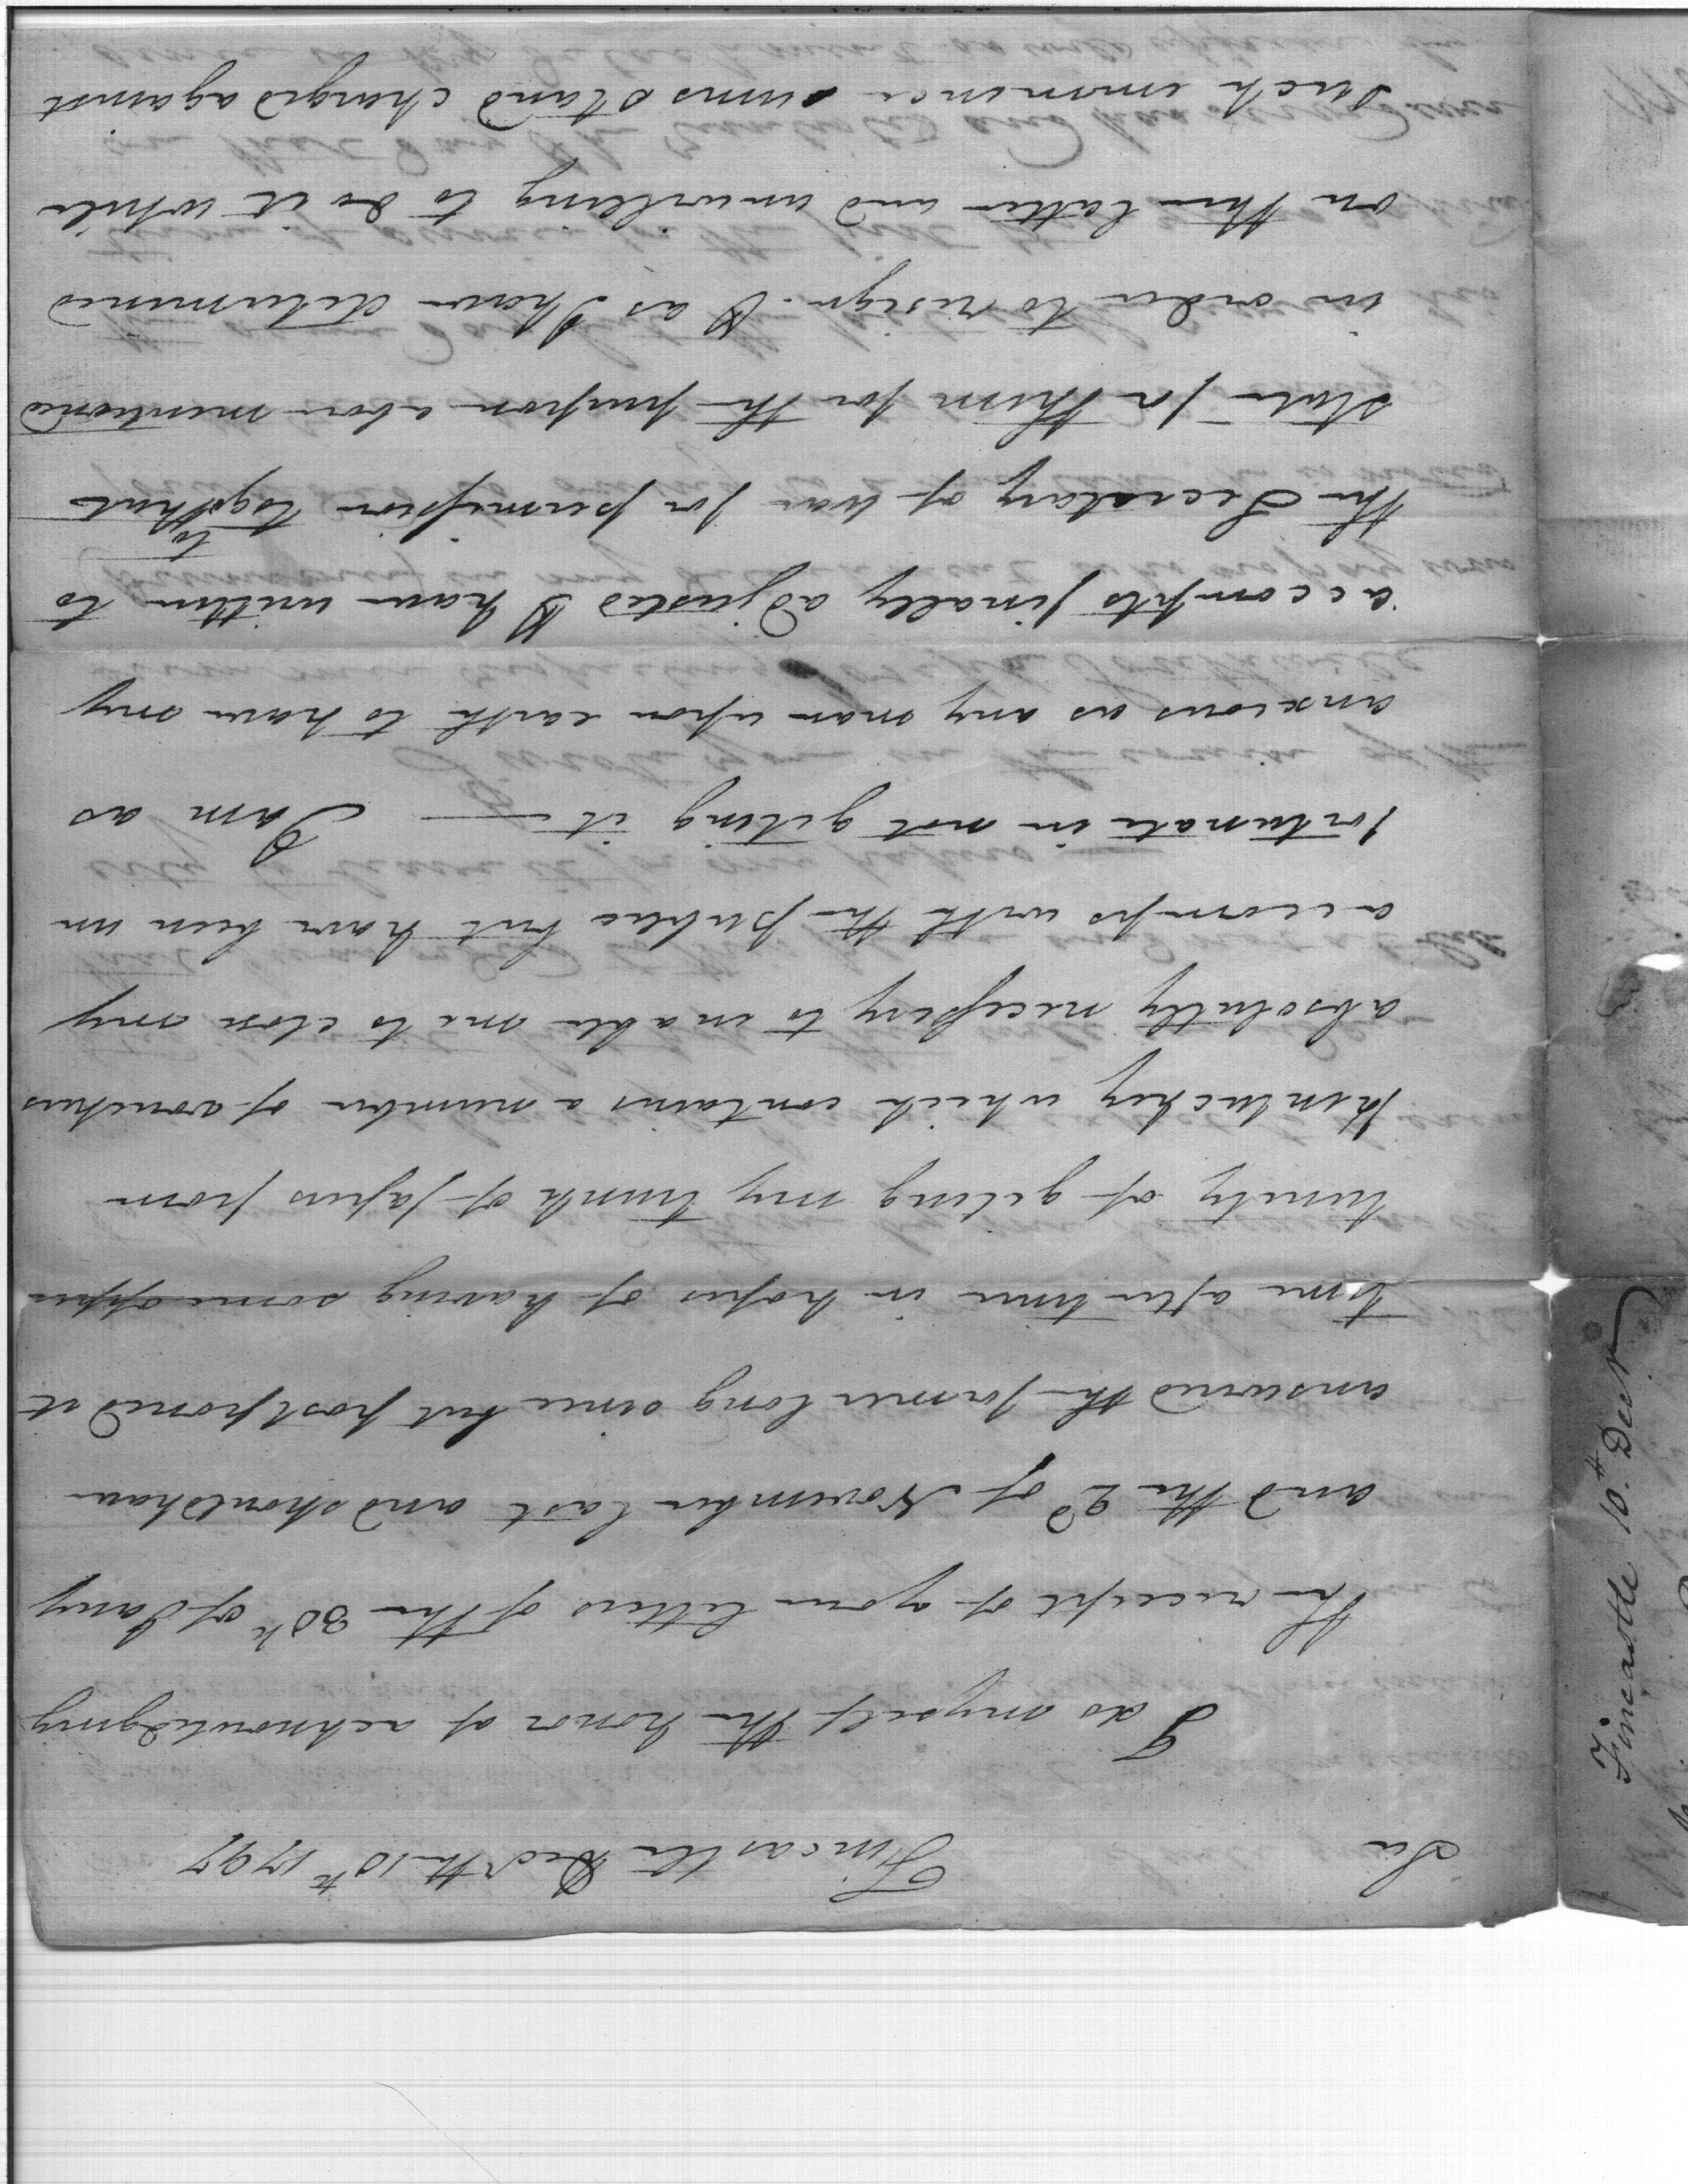 Sir Fincastle Decr the 10th 1797
I do myself the honor of acknowledging
the receipt of your letters of the 30th of Jany
and the 2d of November last and should have
answered the former long since but postponed it
time after time in hopes of having some oppor
tunity of geting my trunk of papers from
Kentuckey which contains a number of vouchers
absolutly necessary to enable me to close my
accompts with the publick but have been un
fortunate in not geting it — I am as
anxious as any man upon earth to have my
accompts finally adjusted & have written to
the Secratary of war for permission to go to that
state for them for the purpose above mentioned
in order to resign. & as I have determined
on the latter and unwilling to do it while
such immence sums stand charged against
Fincastle 10th Decr